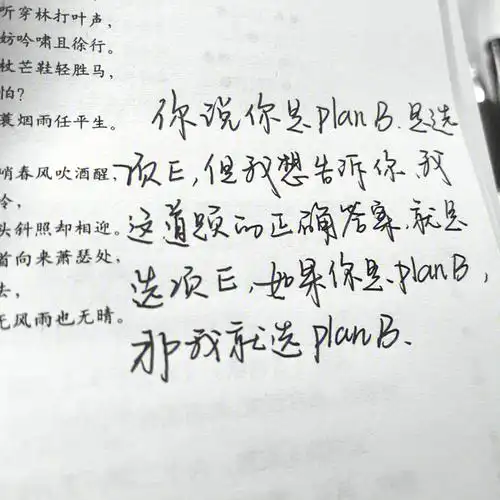 听穿林打叶声，
妨吟啸且徐行。
杖芒鞋轻胜马，
怕？
蓑烟雨任平生。
峭春风吹酒醒，
冷，
头斜照却相迎。
首向来萧瑟处，
去，
无风雨也无晴。
你说你是planB.是选
项E,但我想告诉你,我
这道题的正确答案,就是
选项E,如果你是planB,
那我就选planB.